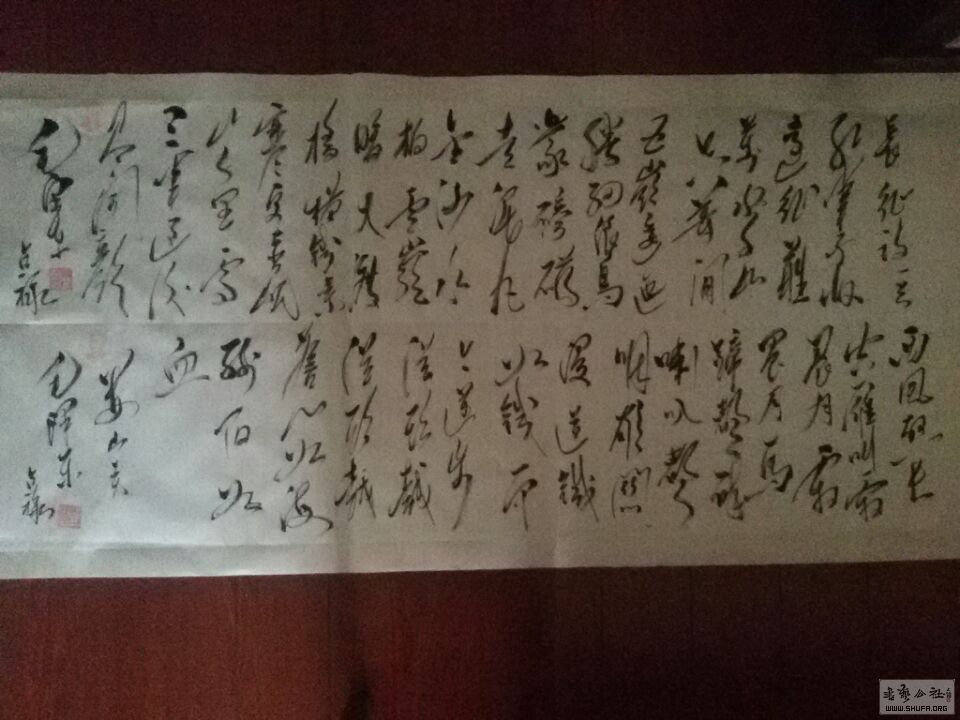 長征詩
紅軍不怕
遠征難
萬水千山
只等閒
五嶺逶迤
騰細浪烏
蒙磅礴
走泥丸
金沙水
拍雲崖
暖大渡
橋橫鐵索
寒更喜岷
山千里雪
三軍過後
盡開顏
毛澤東
西風烈長
空雁叫霜
晨月霜
晨月馬
蹄聲碎
喇叭聲
咽雄關
漫道鐵
如鐵而
今邁步
從頭越
從頭越
蒼山如海
殘陽如
血
婁山關
毛澤東
書藝公社
WWW.SHUFA.ORG